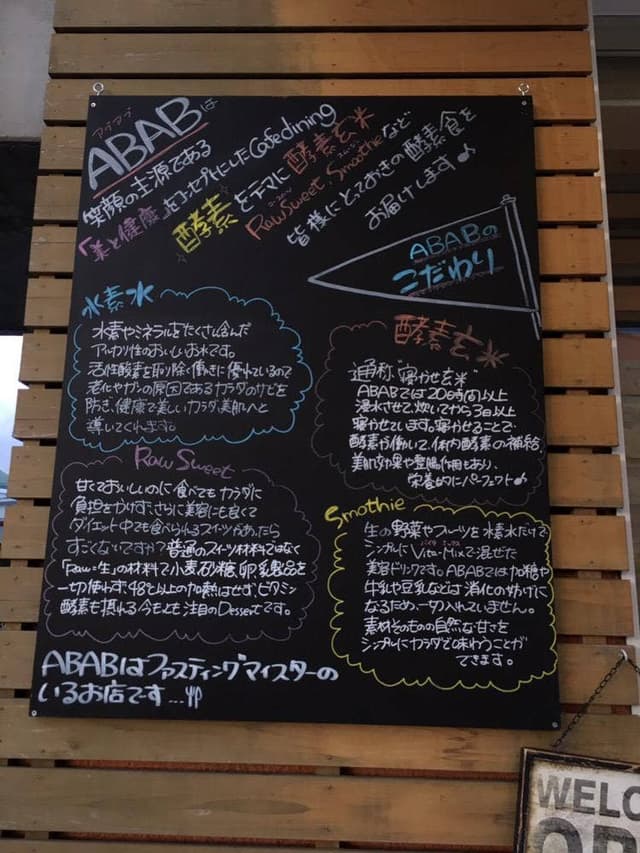 アブアブ
ABABは
笑顔の主源である
「美と健康」をコンセプトにしたCafedining
酵素をテーマに酵素玄米
RawSweet、Smoothieなど
皆様にとっておきの酵素食を
お届けします♪
ABABの
こだわり
水素水
水素やミネラルをたくさん含んだ
アルカリ性のおいしいお水です。
活性酸素を取り除く働きに優れているので
老化やガンの原因であるカラダのサビを
防ぎ、健康で美しいカラダ、美肌へと
導いてくれます。
酵素玄米
通称“寝かせ玄米”
ABABでは20時間以上
浸水させて、炊いてから3日以上
寝かせています。寝かせることで
酵素が働いて、体内酵素の補給、
美肌効果や整腸作用もあり、
栄養的にパーフェクト♪
Raw Sweet
甘くておいしいのに食べてもカラダに
負担をかけず、さらに美容にも良くて
ダイエット中でも食べられるスイーツがあったら
すごくないですか？普通のスイーツ材料ではなく
「Raw=生」の材料で小麦、砂糖、卵、乳製品を
一切使わず、48℃以上の加熱はせず、ビタミン
酵素も摂れる今もっとも注目のDessertです。
Smothie
生の野菜やフルーツを水素水だけで
シンプルにVita-Mixで混ぜた
バイタ ミックス
美容ドリンクです。ABABでは加糖や
牛乳や豆乳などは消化のさまたげに
なるため、一切入れていません。
素材そのものの自然な甘さを
シンプルにカラダで味わうことが
できます。
ABABはファスティングマイスターの
いるお店です...
WELC